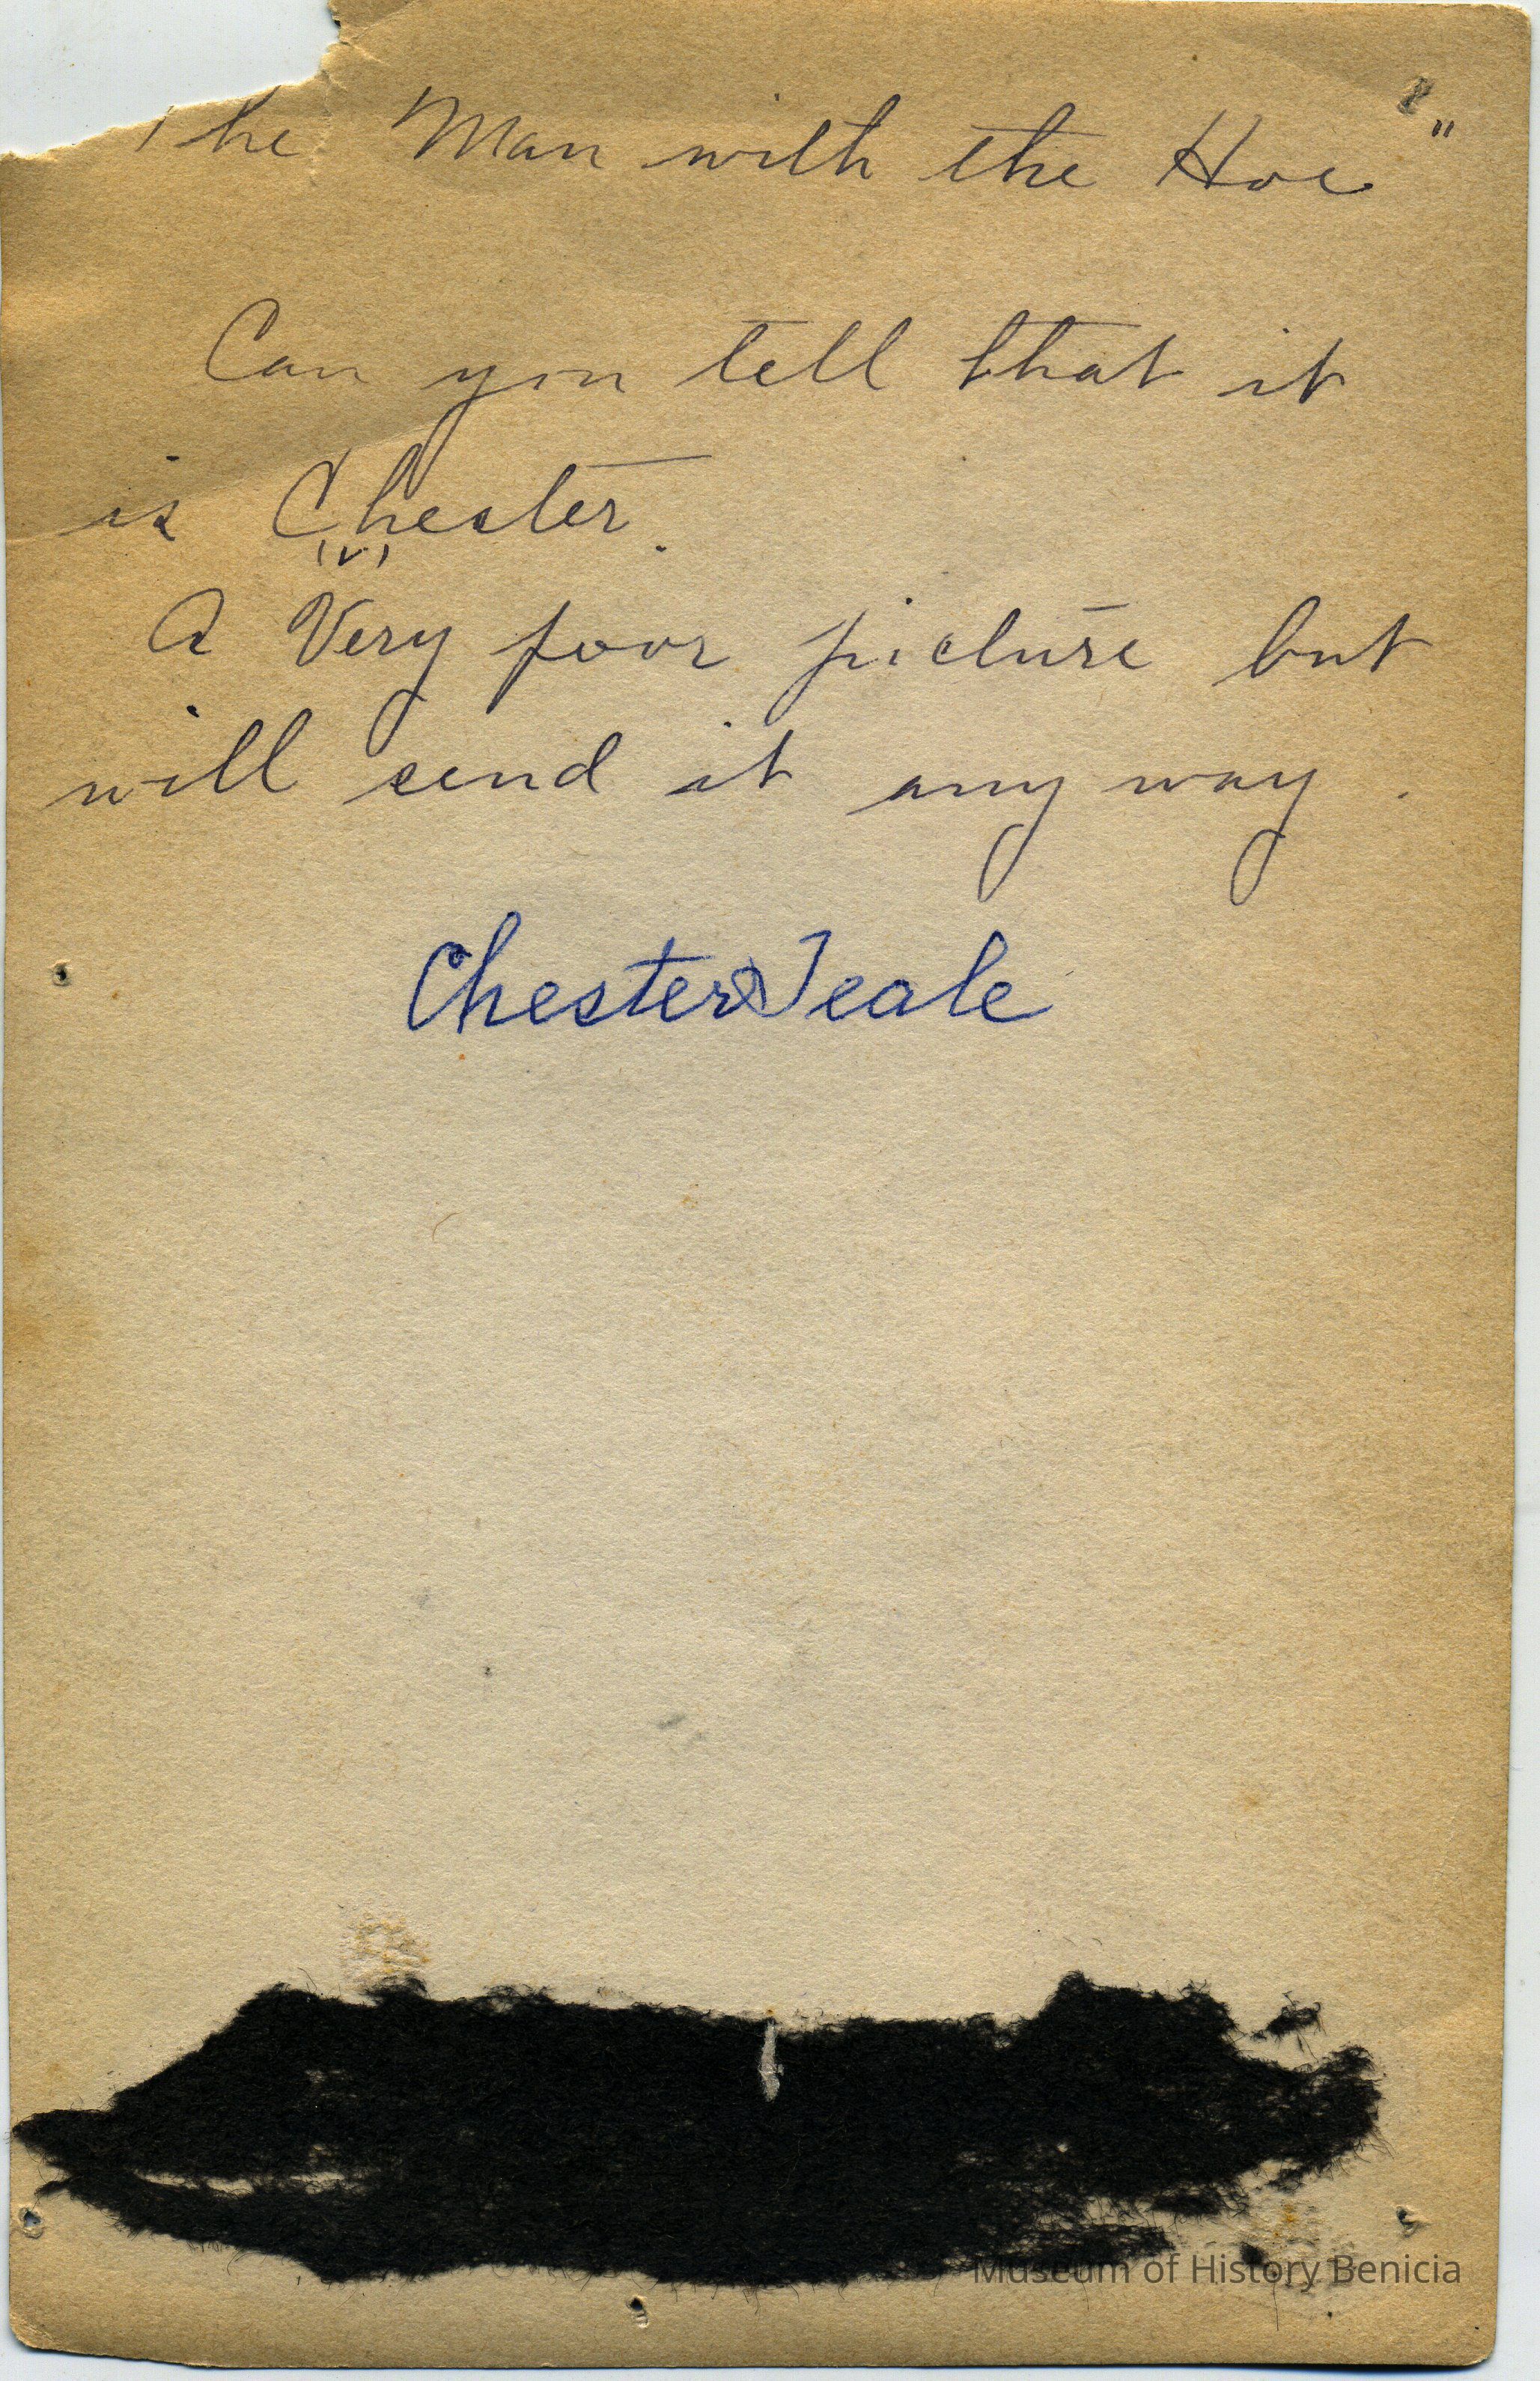 The Man with the Hoe"
Can you tell that it
is Chester.
(v)
A Very poor picture but
will send it any way.
Chester Teale
Museum of History Benicia